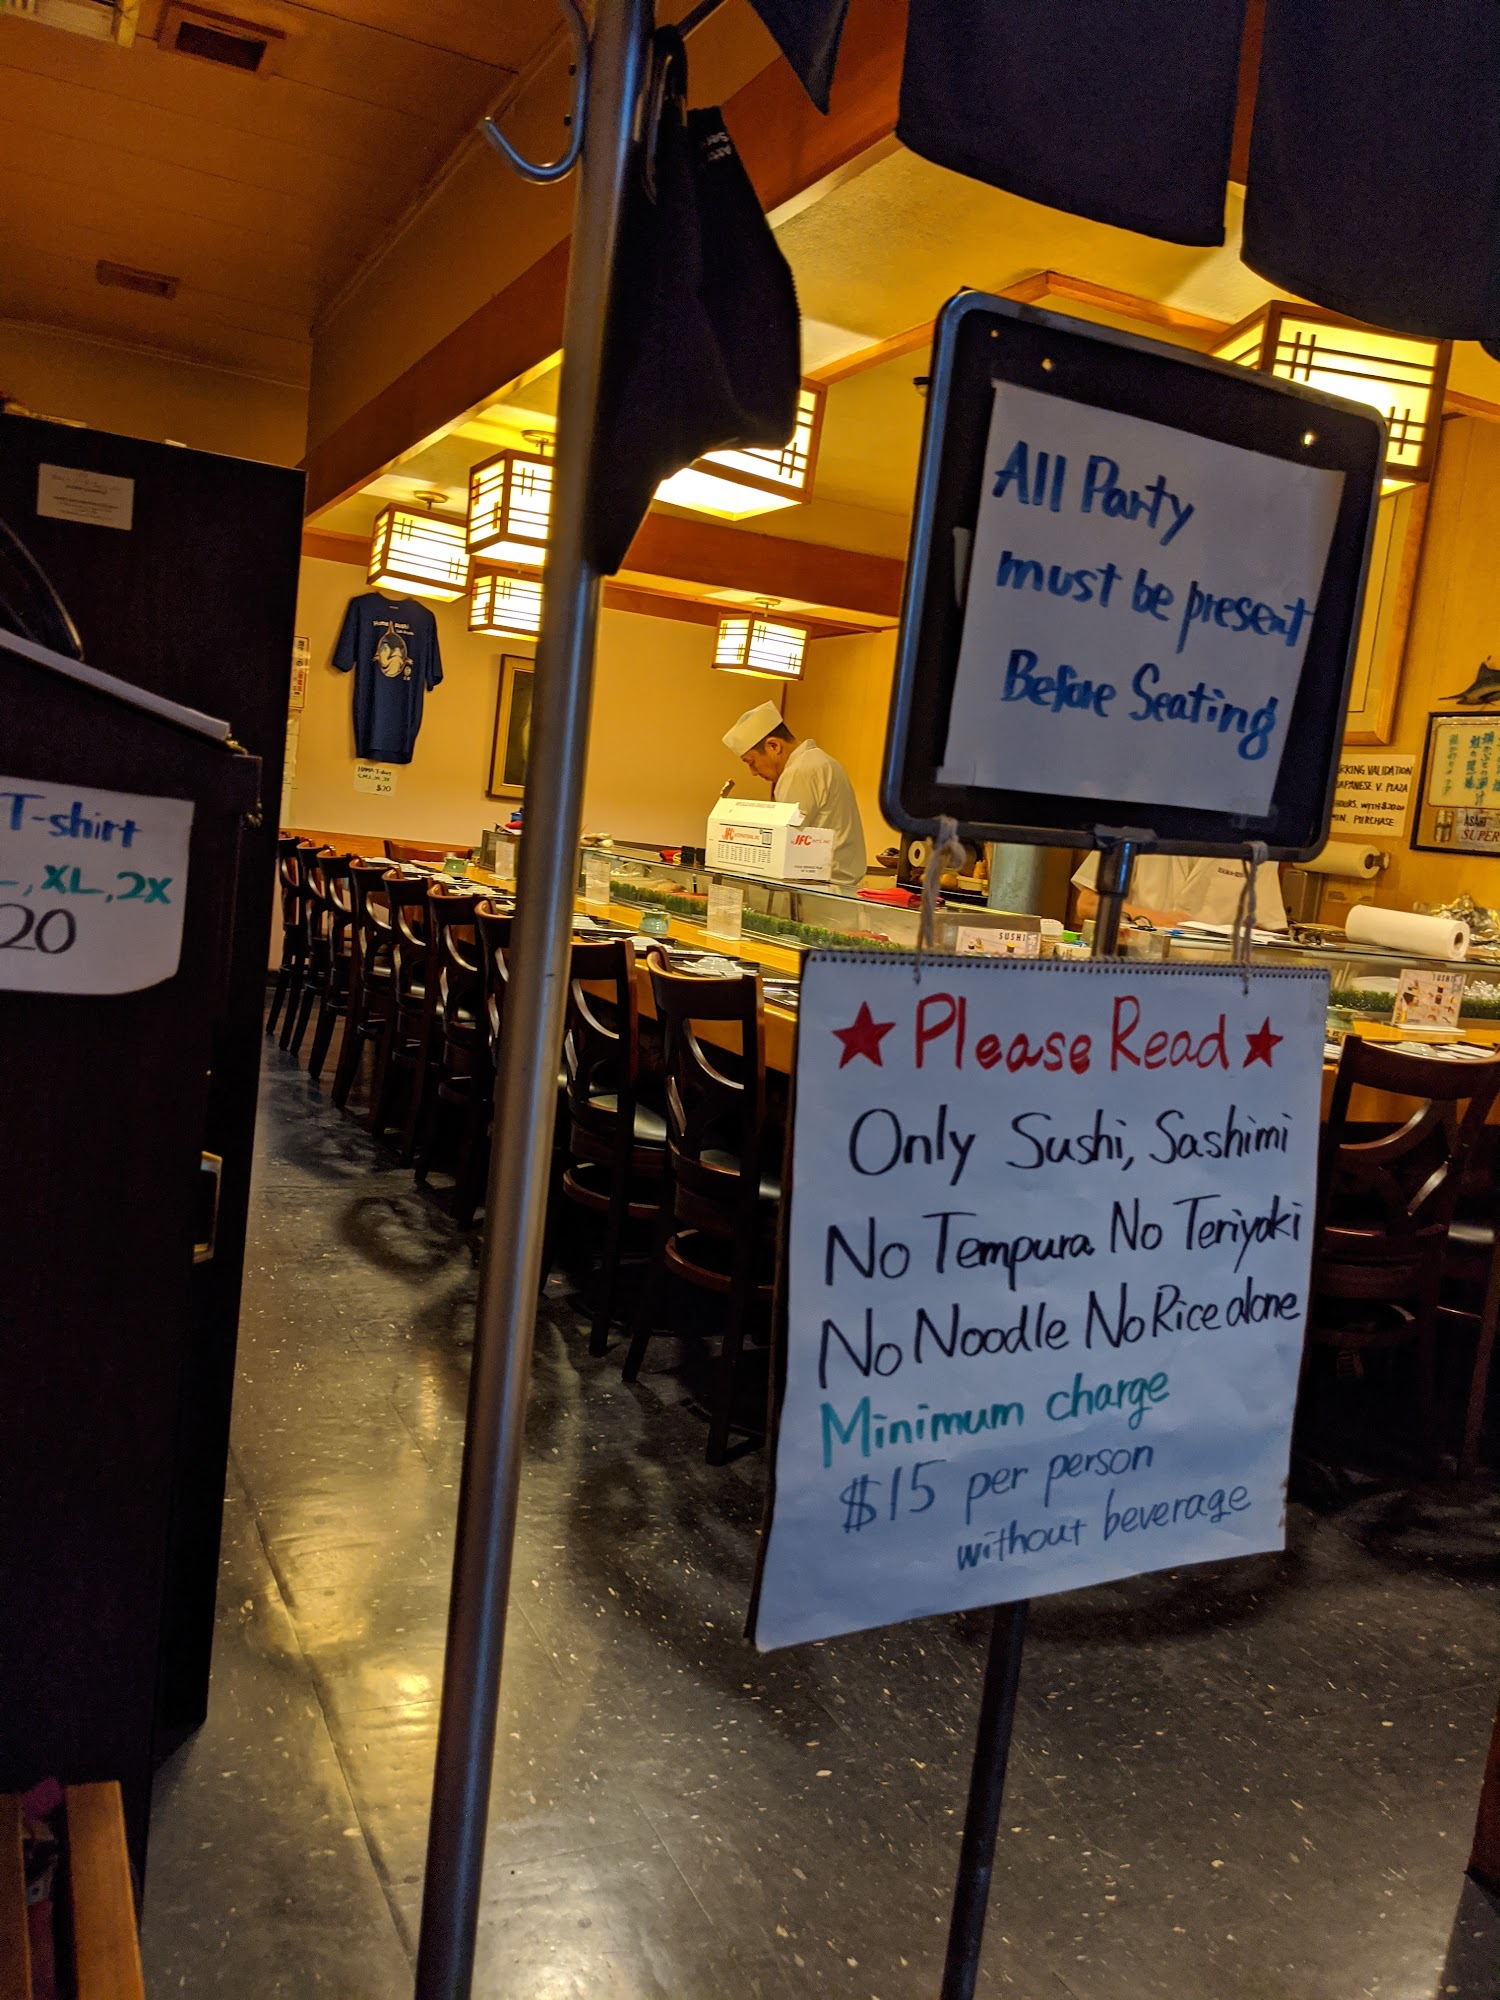 All Party
must be present
Before Seating
★ Please Read ★
Only Sushi, Sashimi
No Tempura No Teriyaki
No Noodle No Rice alone
Minimum charge
$15 per person
without beverage
T-shirt
L, XL, 2X
20
$20
JFC
JFC
SUSHI
SUSHI
RKING VALIDATION
JAPANESE V. PLAZA
HOURS. WITH $20.00
MIN. PURCHASE
ASAHI
SUPER